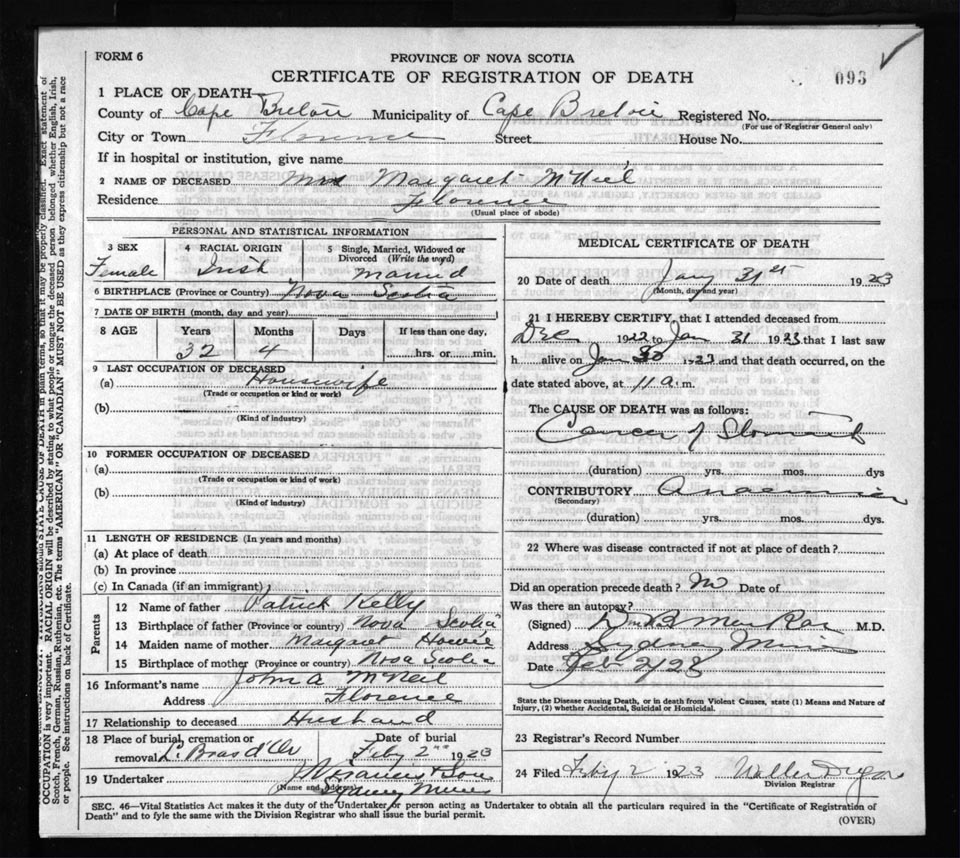 FORM 6
PROVINCE OF NOVA SCOTIA
CERTIFICATE OF REGISTRATION OF DEATH
093
1 PLACE OF DEATH
County of Cape Breton Municipality of Cape Breton Registered No.
(For use of Registrar General only)
City or Town Florence Street House No.
If in hospital or institution, give name
2 NAME OF DECEASED Mrs Margaret McNeil
Residence Florence
(Usual place of abode)
PERSONAL AND STATISTICAL INFORMATION
3 SEX 4 RACIAL ORIGIN 5 Single, Married, Widowed or Divorced (Write the word)
Female Irish Married
6 BIRTHPLACE (Province or Country) Nova Scotia
7 DATE OF BIRTH (month, day and year)
8 AGE Years Months Days If less than one day,
32 4 hrs. or min.
9 LAST OCCUPATION OF DECEASED
(a) Housewife
(Trade or occupation or kind or work)
(b)
(Kind of industry)
10 FORMER OCCUPATION OF DECEASED
(a)
(Trade or occupation or kind of work)
(b)
(Kind of industry)
11 LENGTH OF RESIDENCE (In years and months)
(a) At place of death
(b) In province
(c) In Canada (if an immigrant)
Parents
12 Name of father Patrick Kelly
13 Birthplace of father (Province or country) Nova Scotia
14 Maiden name of mother Margaret Howie
15 Birthplace of mother (Province or country) Nova Scotia
16 Informant's name John A McNeil
Address Florence
17 Relationship to deceased Husband
18 Place of burial, cremation or removal L. Bras d'Or Date of burial Feby 2nd 1923
19 Undertaker & Sons
(Name and address) Sydney Mines
MEDICAL CERTIFICATE OF DEATH
20 Date of death Jany 31st 1923
(Month, day and year)
21 I HEREBY CERTIFY, that I attended deceased from
Dec 1922 to Jan 31 1923 that I last saw
h alive on Jan 30 1923 and that death occurred, on the
date stated above, at 11 a.m.
The CAUSE OF DEATH was as follows:
Cancer of Stomach
(duration) yrs. mos. dys
CONTRIBUTORY Anaemia
(Secondary)
(duration) yrs. mos. dys.
22 Where was disease contracted if not at place of death?
Did an operation precede death? No Date of
Was there an autopsy?
(Signed) M.D.
Address Sydney Mines
Date Feb 2/23
State the Disease causing Death, or in death from Violent Causes, state (1) Means and Nature of Injury, (2) whether Accidental, Suicidal or Homicidal.
23 Registrar's Record Number
24 Filed Feby 2 1923
Division Registrar
SEC. 46—Vital Statistics Act makes it the duty of the Undertaker or person acting as Undertaker to obtain all the particulars required in the "Certificate of Registration of
Death" and to fyle the same with the Division Registrar who shall issue the burial permit.
(OVER)
OCCUPATION is very important. RACIAL ORIGIN will be described by stating to what people or tongue the deceased person belonged whether English, Irish,
Scotch, French, German, Russian, Ruthenian, etc. The terms "AMERICAN" OR "CANADIAN" MUST NOT BE USED as they express citizenship but not a race
or people. See instructions on back of Certificate.